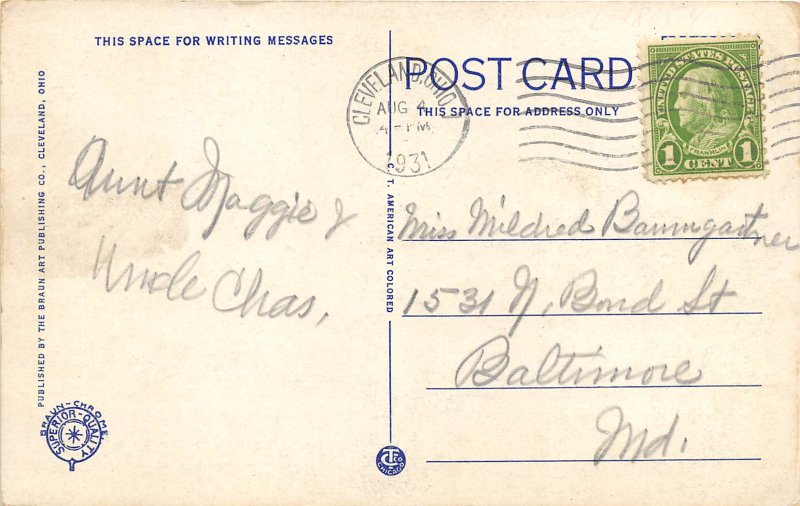 THIS SPACE FOR WRITING MESSAGES
POST CARD
THIS SPACE FOR ADDRESS ONLY
CLEVELAND, OHIO
AUG 4
4-PM
1931
UNITED STATES POSTAGE
FRANKLIN
1 CENT 1
Aunt Maggie &
Uncle Chas,
Miss Mildred Baumgartner
1531 N, Bond St
Baltimore
Md.
PUBLISHED BY THE BRAUN ART PUBLISHING CO., CLEVELAND, OHIO
C. T. AMERICAN ART COLORED
BRAUN-CHROME
SUPERIOR-QUALITY
CT CO
CHICAGO